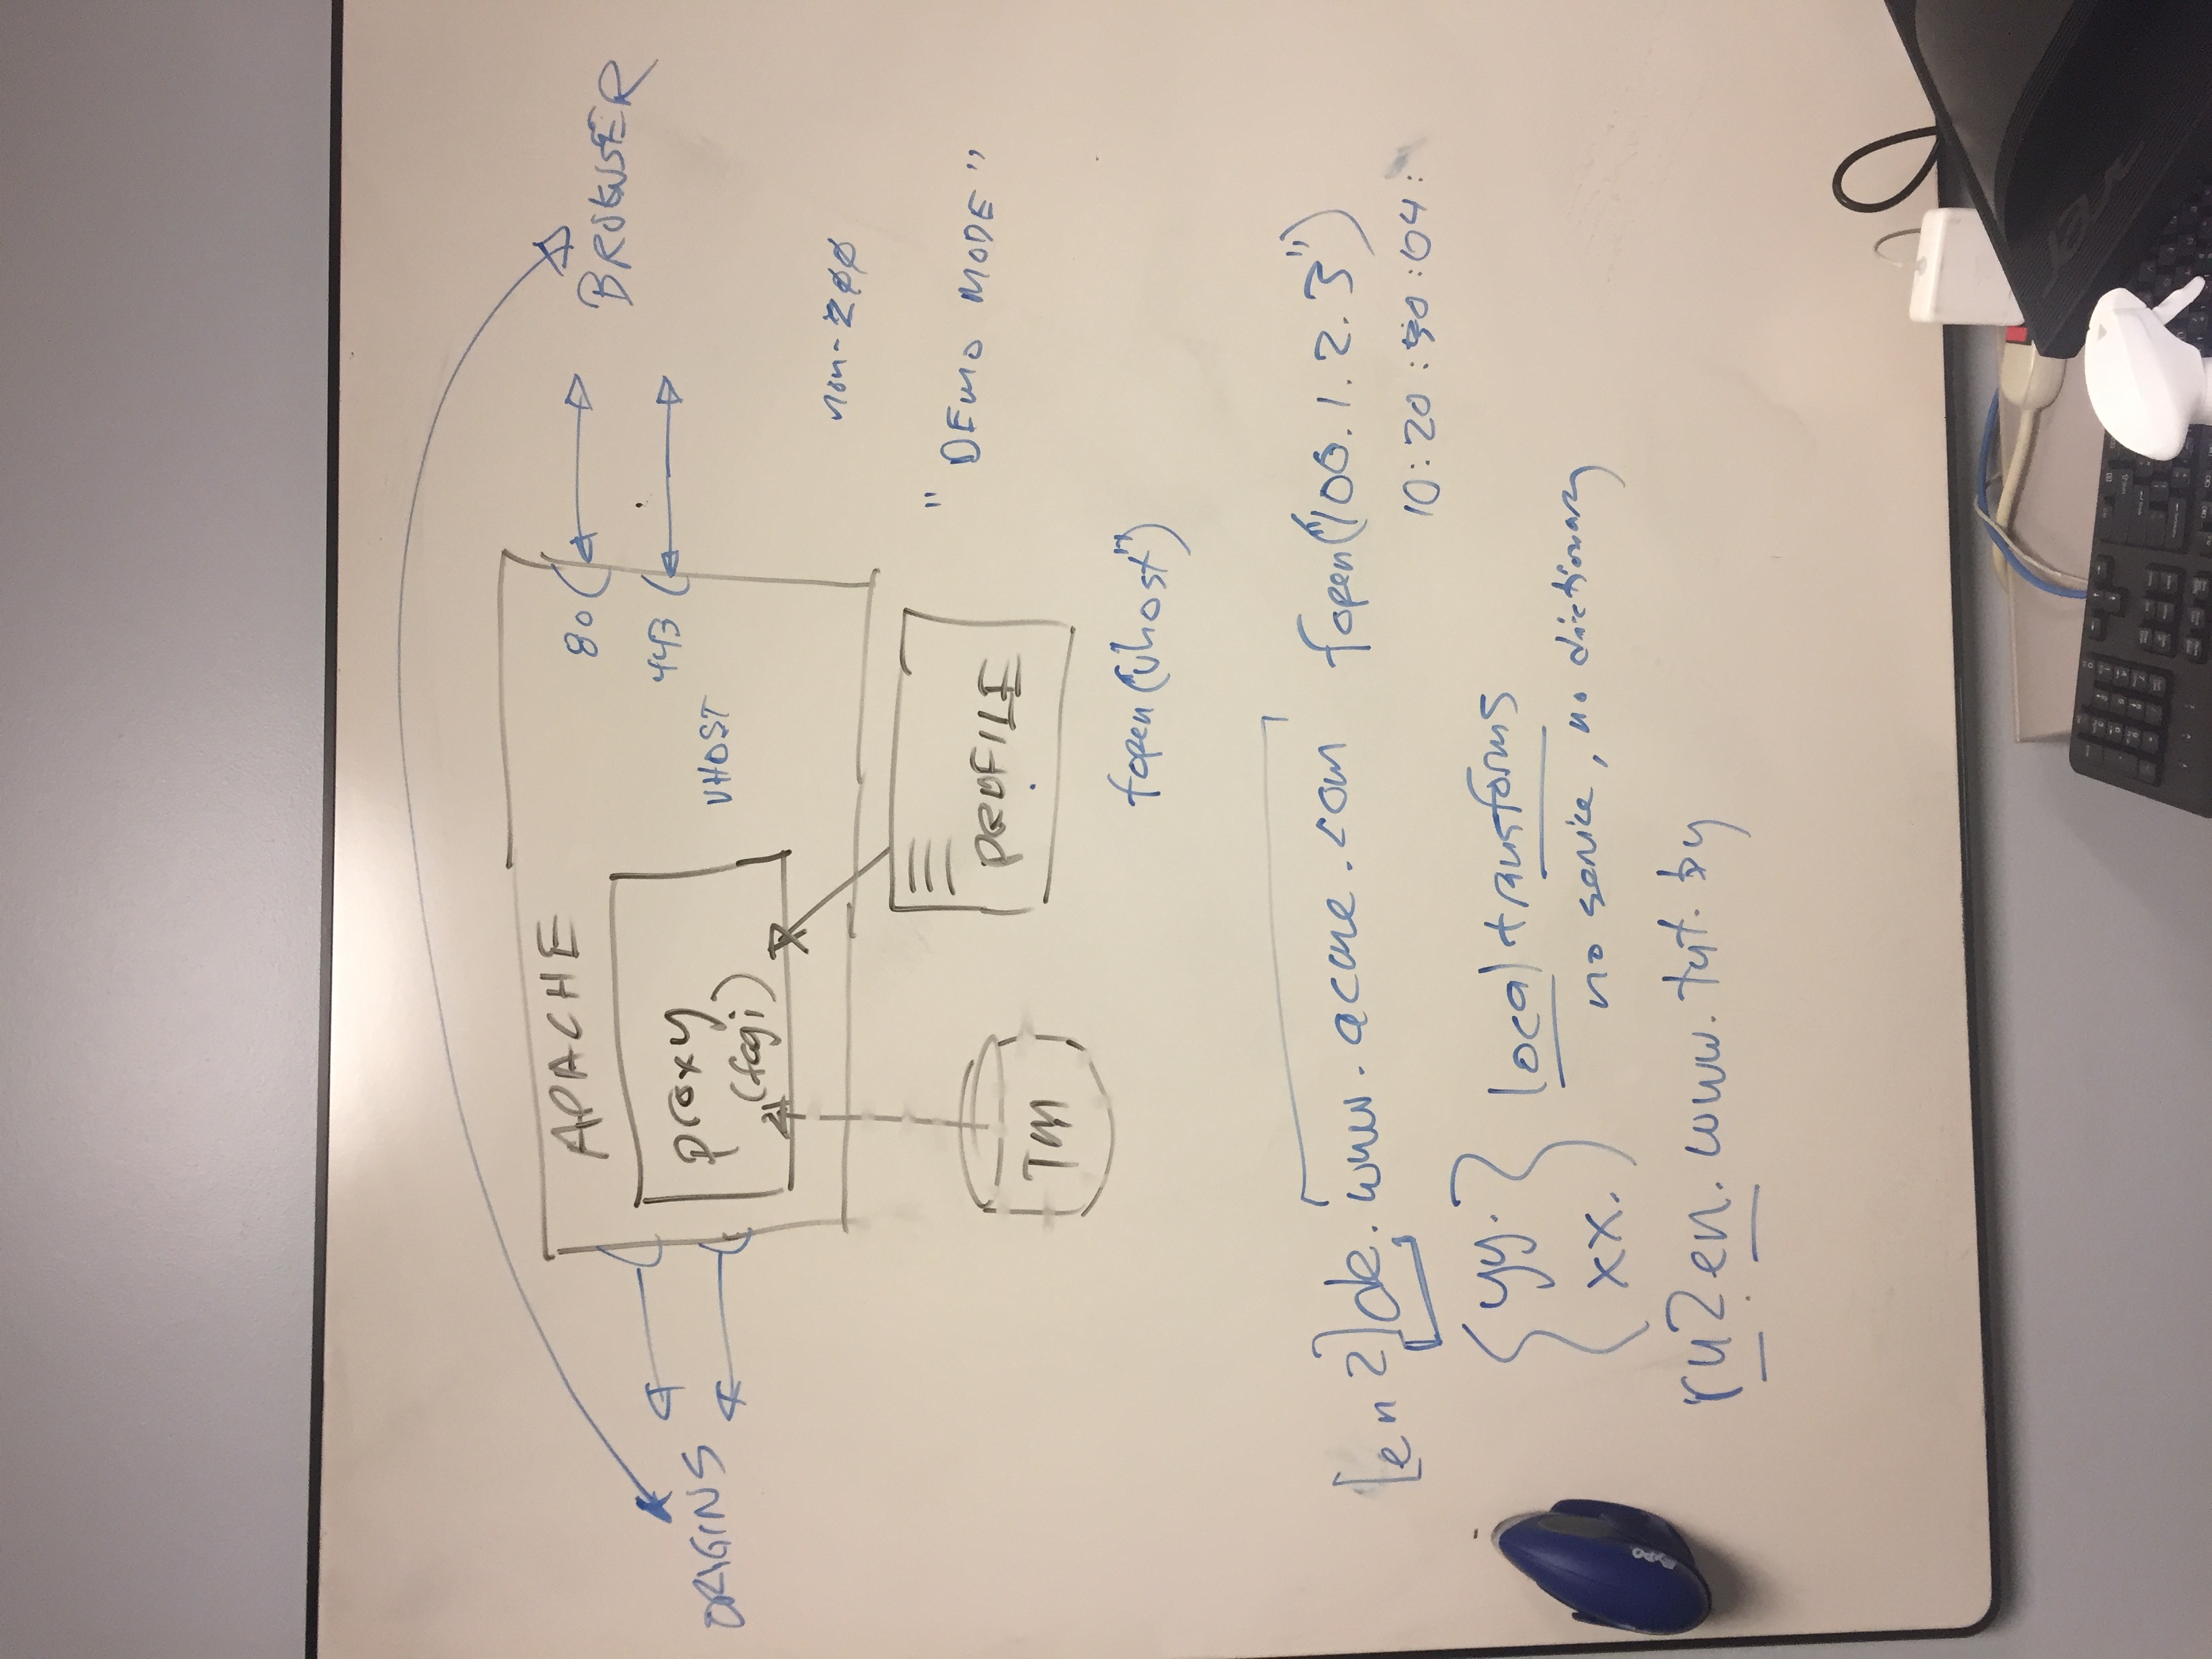 BROWSER
80
443
VHOST
APACHE
proxy
(fcgi)
ORIGINS
PROFILE
TM
non-200
"DEMO MODE"
fopen("vhost")
[en2]de.www.acme.com fopen("100.1.2.3")
10:20:30:04:
{yy.} local transforms
xx. no service, no dictionary
ru2en.www.tut.by
acer
expo